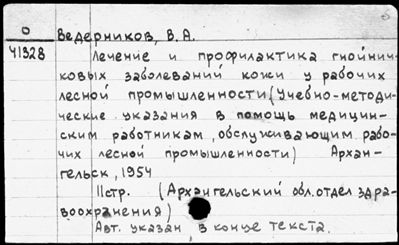 О Ведерников, В.А.
41328 Лечение и профилактика гнойнич-
ковых заболеваний кожи у рабочих
лесной промышленности (Учебно-методи-
ческие указания в помощь медицин-
ским работникам, обслуживающим рабо-
чих лесной промышленности) Архан-
гельск, 1954
11стр. (Архангельский обл. отдел здра-
воохранения)
Авт. указан в конце текста.